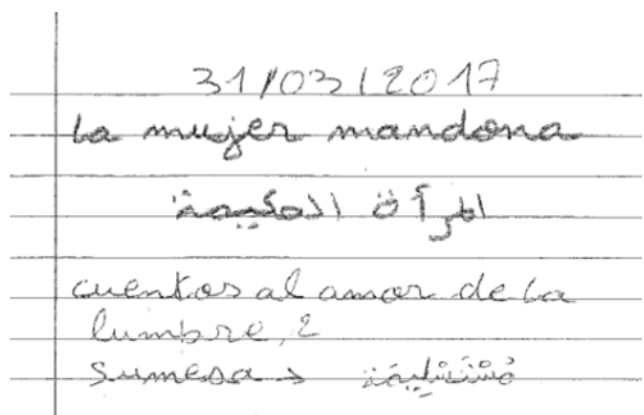 31/03/2017
la mujer mandona
المرآة الحكيمة
cuentos al amor de la
lumbre, 2
sumesa → مُسْتَسْلِيمَة